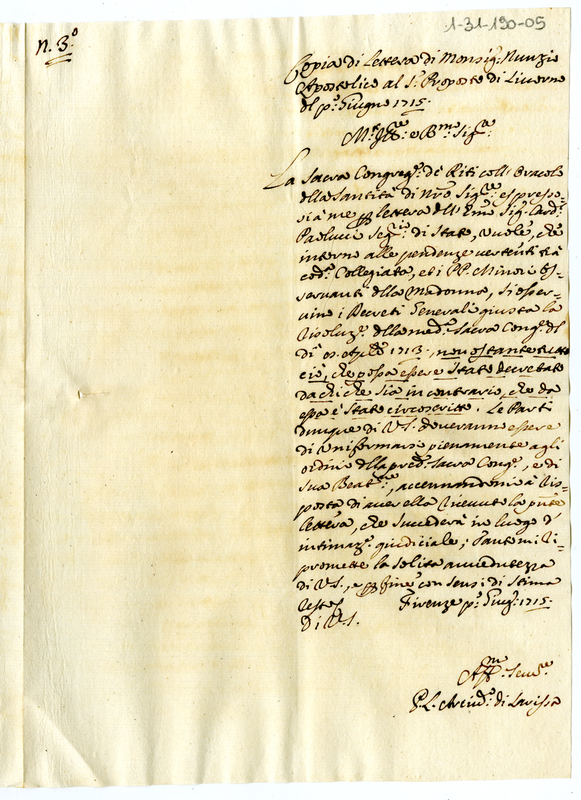 1-31-190-05
n. 3.°
Copia di Lettera di Monsig.r Nunzio
Apostolico al S.r Proposto di Livorno
del p.o Giugno 1715.
M.to Ill.re e R.mo Sig.re
La Sacra Congreg.e de Riti coll'Oracolo
della Santità di Nro Sig.re espresso-
si à me per lettera dell'Emo Sig. Card.
Paolucci Seg.rio di Stato, vuole, che
intorno alle pendenze vertenti trà
cod.a Collegiata, et i PP. Minori Os-
servanti della Madonna, si osser-
vino i Decreti Generali giusta la
risoluz.e della med.a Sacra Cong.e del
dì 1713, non ostante tutto
ciò, che possa essere stato decretato
da chi che sia in contrario, che da
essa è stato circoscritto. Le Parti
dunque di V.S. doveranno essere
di uniformarsi pienamente agli
ordini della pred.a Sacra Cong.e, e di
Sua Beat.ne, accennandomi à ris-
posta di aver ella ricevuto la pnte
lettera, che succederà in luogo d'
intimaz.e giudiciale; Tanto mi ri-
prometto la solita avvedutezza
di V.S., e per fine con sensi di stima
resto Firenze p.o Giug.o 1715.
Di V.S.
Aff.mo Serv.re
G. L. Arciv.o di Larissa